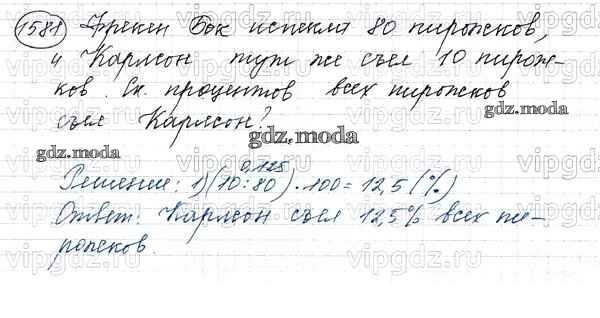 1581 Фрекен Бок испекла 80 пирожков,
и Карлсон тут же съел 10 пирож-
ков. Ск. процентов всех пирожков
съел Карлсон?
gdz.moda
gdz.moda
gdz.moda
0,125
Решение: 1) (10:80) · 100 = 12,5 (%)
Ответ: Карлсон съел 12,5% всех пи-
рожков.
vipgdz.ru